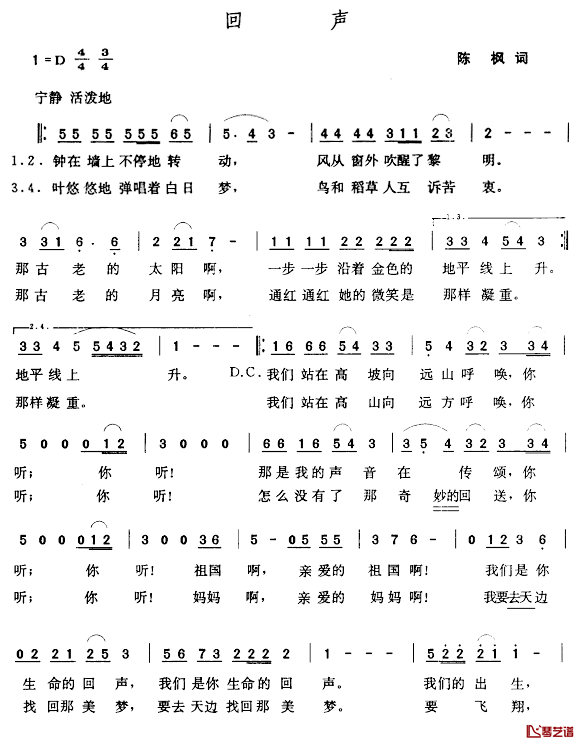 回 声
1=D 4/4 3/4 陈 枫 词
宁静 活泼地
‖: 55 55 555 65 | 5. 4 3 - | 44 44 311 23 | 2 - - - |
1.2. 钟在 墙上 不停地 转 动， 风从 窗外 吹醒了 黎 明。
3.4. 叶悠 悠地 弹唱着 白日 梦， 鸟和 稻草 人互 诉苦 衷。
1.3.
3 331 6. 6 | 2 221 7 - | 11 11 22 222 | 33 43 54 3 :‖
那古 老 的 太 阳 啊， 一步 一步 沿着 金色的 地平 线上 升。
那古 老 的 月 亮 啊， 通红 通红 她的 微笑是 那样 凝重。
2.4.
33 4 5 5432 | 1 - - - ‖: 1 66 16 54 3 | 5 4 32 334 |
地平 线 上 升。 D.C. 我们 站在 高 坡向 远 山呼 唤，你
那样 凝 重。 我们 站在 高 山向 远 方呼 唤，你
5 0 0 0 12 | 3 0 0 0 | 66 116 54 3 | 3 5 4 3 34 |
听； 你 听！ 那是 我的 声 音 在 传 颂，你
听； 你 听！ 怎么 没有 了 那 奇 妙的 回 送，你
5 0 0 0 12 | 3 0 0 36 | 5 - 0 5 55 | 3 7 6 - | 0 12 3 6 |
听； 你 听！ 祖国 啊， 亲 爱的 祖 国 啊！ 我们 是 你
听； 你 听！ 妈妈 啊， 亲 爱的 妈 妈 啊！ 我要 去 天边
02 21 25 3 | 56 73 222 32 | 1 - - - | 5 22 21 1 - |
生 命的 回 声， 我们 是你 生命的 回 声。 我们的 出 生，
找 回那 美 梦， 要去 天边 找回那 美 梦。 要 飞 翔，
琴艺谱